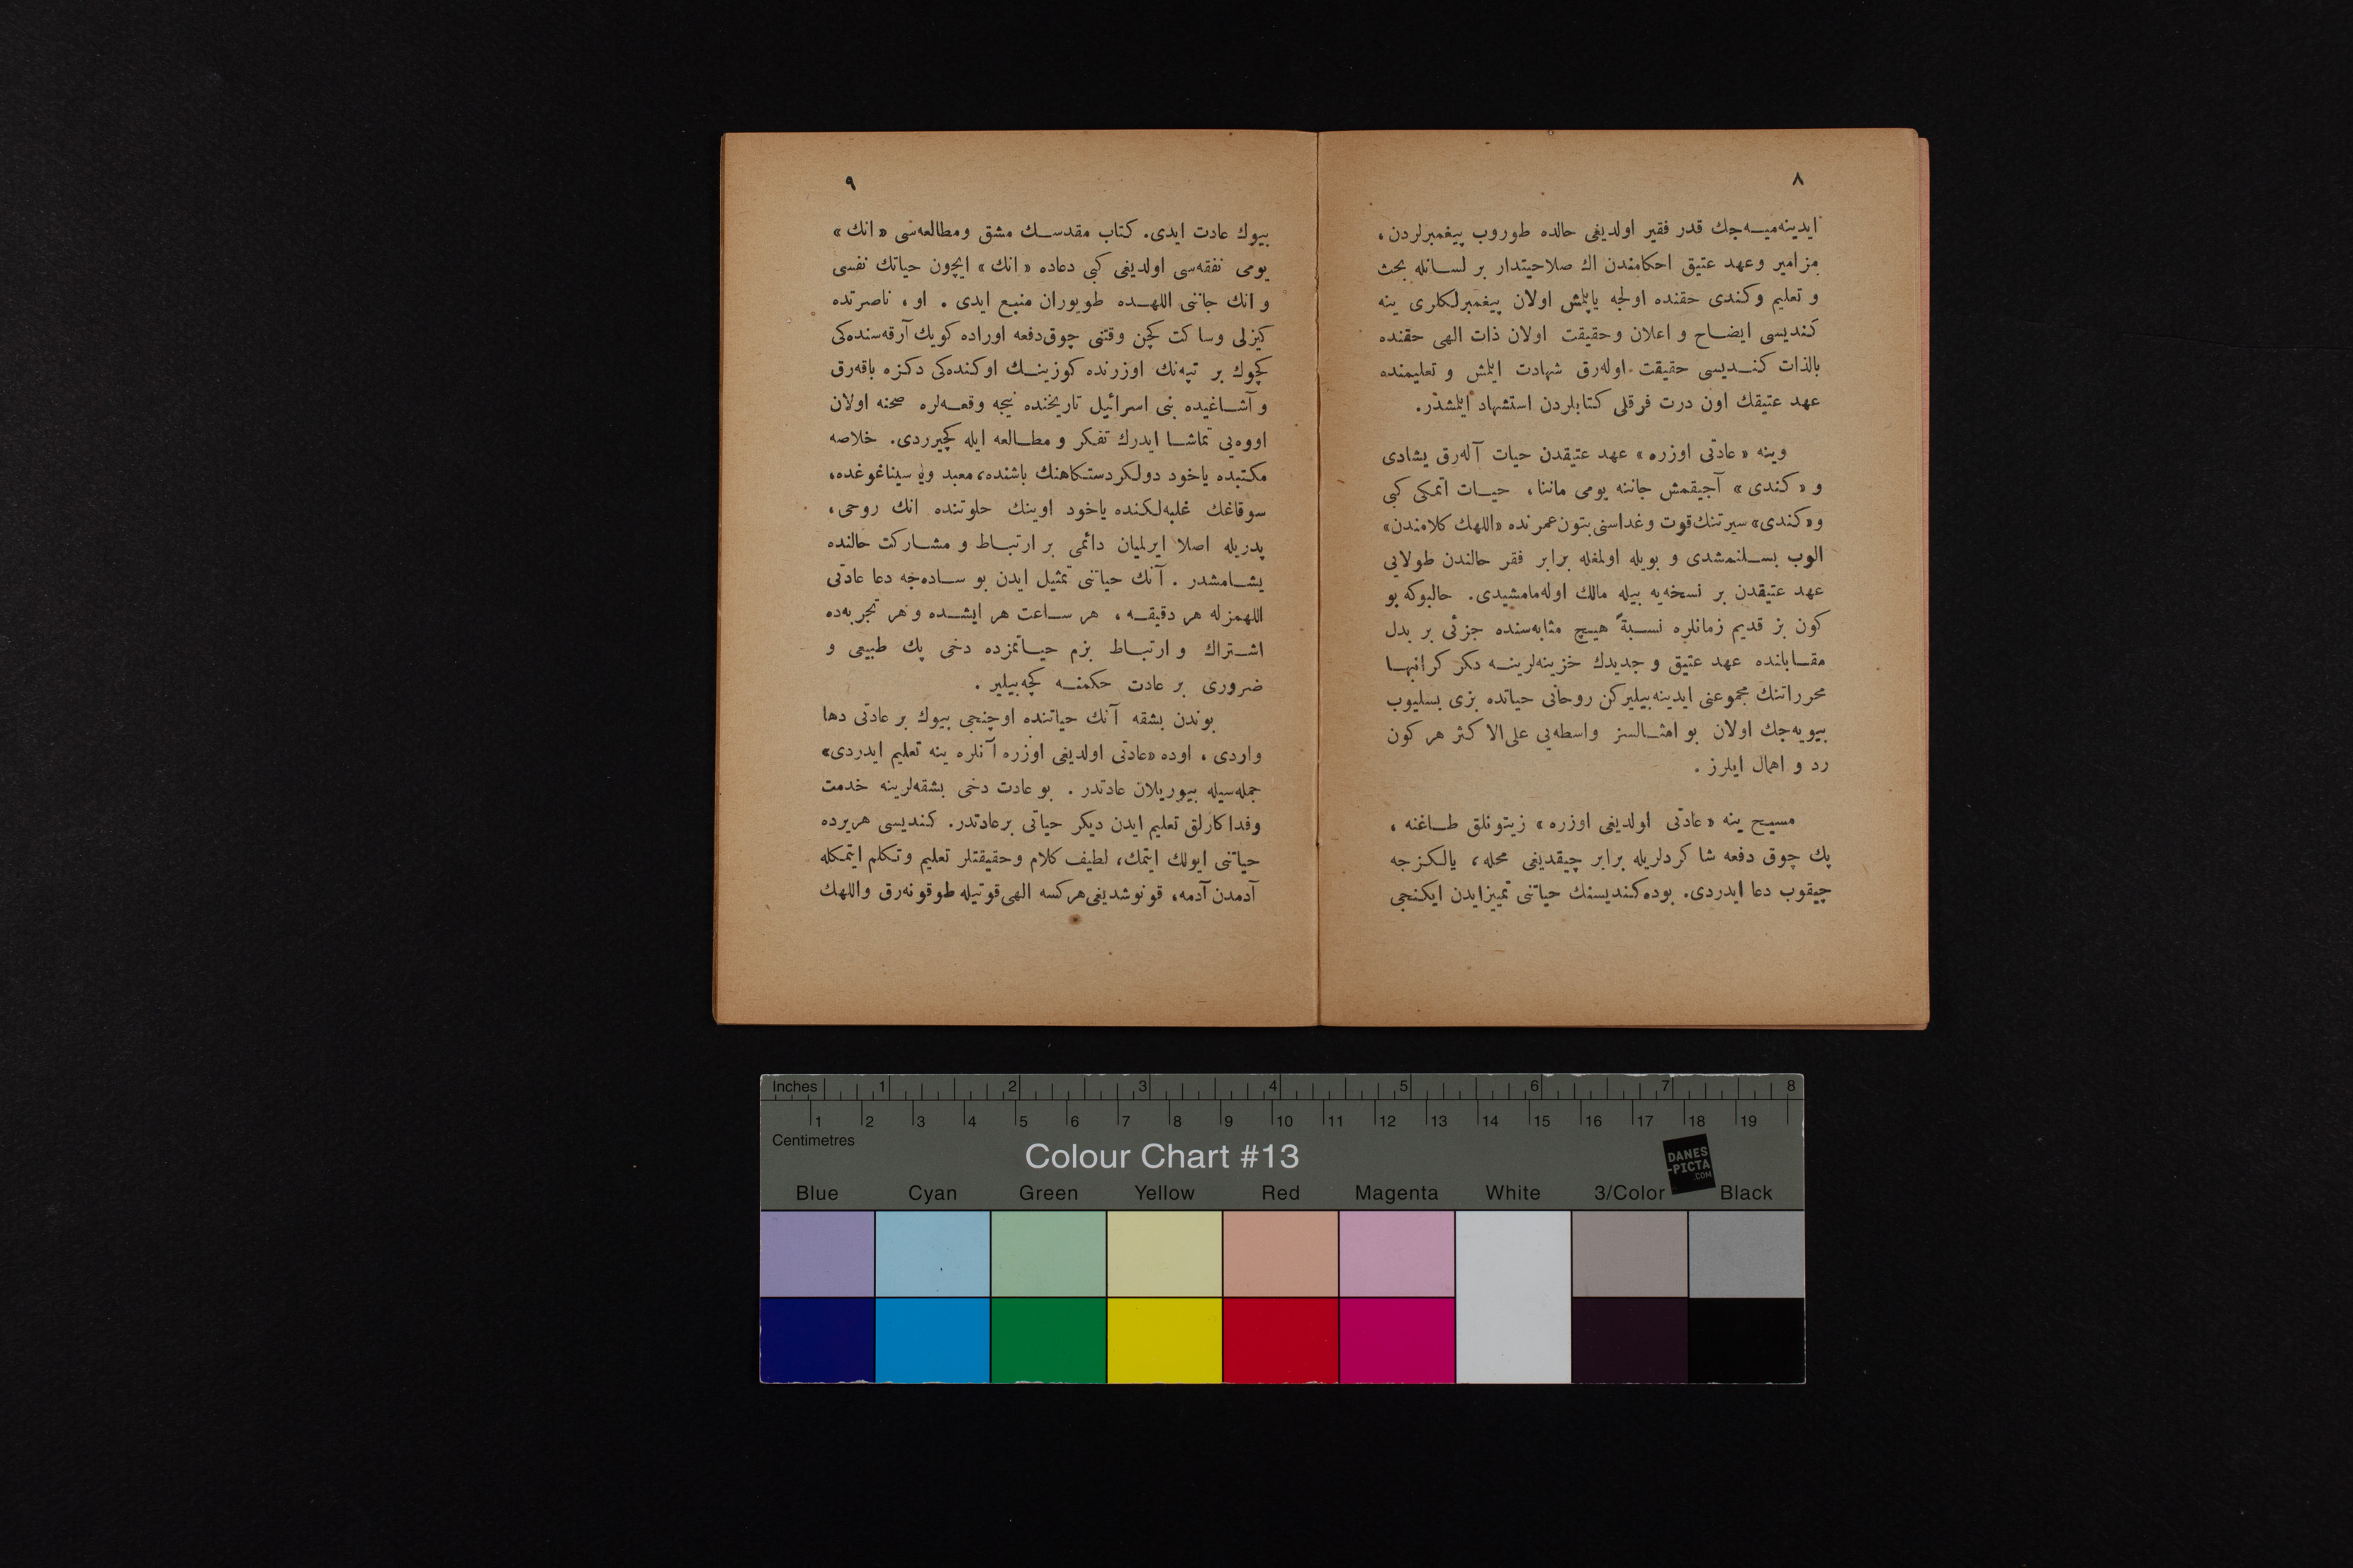 ٨
ایدینه‌میه‌جك قدر فقیر اولدیغی حالده طوروب پیغمبرلردن،
مزامیر وعهد عتیق احكامندن اك صلاحیتدار بر لسانله بحث
و تعلیم وكندی حقنده اولجه یاپلمش اولان پیغمبرلكلری ینه
كندیسی ایضاح و اعلان وحقیقت اولان ذات الهی حقنده
بالذات كندیسی حقیقت اوله‌رق شهادت ایلمش و تعلیمنده
عهد عتیقك اون درت فرقلی كتابلردن استشهاد ایلمشدر.
وینه «عادتی اوزره» عهد عتیقدن حیات آله‌رق یشادی
و «كندی» آجیقمش جاننه یومی ماننا، حیات اتمكی كبی
و«كندی» سیرتنك قوت وغداسنی بتون عمرنده «اللهك كلامندن»
الوب بسلنمشدی و بویله اولمغله برابر فقر حالندن طولایی
عهد عتیقدن بر نسخه‌یه بیله مالك اوله‌مامشیدی. حالبوكه بو
كون بز قدیم زمانلره نسبةً هیچ مثابه‌سنده جزئی بر بدل
مقابلنده عهد عتیق و جدیدك خزینه‌لرینه دكر كرانبها
محرراتنك مجموعنی ایدینه‌بیلیركن روحانی حیاتده بزی بسلیوب
بیویه‌جك اولان بو امثالسز واسطه‌یی علی‌الاكثر هر كون
رد و اهمال ایلرز .
مسیح ینه «عادتی اولدیغی اوزره» زیتونلق طاغنه ،
پك چوق دفعه شاكردلریله برابر چیقدیغی محله، یالكزجه
چیقوب دعا ایدردی. بوده كندیسنك حیاتنی تمییز ایدن ایكنجی
٩
بیوك عادت ایدی. كتاب مقدسك مشق ومطالعه‌سی «انك»
یومی نفقه‌سی اولدیغی كبی دعاده «انك» ایچون حیاتك نفسی
و انك جاننی اللهده طویوران منبع ایدی . او، ناصرتده
كیزلی وساكت كچن وقتنی چوق‌دفعه اوراده كویك آرقه‌سنده‌كی
كچوك بر تپه‌نك اوزرنده كوزینك اوكنده‌كی دكزه باقه‌رق
و آشاغیده بنی اسرائیل تاریخنده نیجه وقعه‌لره صحنه اولان
اووه‌یی تماشا ایدرك تفكر و مطالعه ایله كچیرردی. خلاصه
مكتبده یاخود دولكردستكاهنك باشنده، معبد ویا سیناغوغده،
سوقاغك غلبه‌لكنده یاخود اوینك حلوتنده انك روحی،
پدریله اصلا ایرلمیان دائمی بر ارتباط و مشاركت حالنده
یشامشدر . آنك حیاتنی تمثیل ایدن بو ساده‌جه دعا عادتی
اللهمزله هر دقیقه ، هر ساعت هر ایشده و هر تجربه‌ده
اشتراك و ارتباط بزم حیاتمزده دخی پك طبیعی و
ضروری بر عادت حكمنه كچه‌بیلیر .
بوندن بشقه آنك حیاتنده اوچنجی بیوك بر عادتی دها
واردی ، اوده «عادتی اولدیغی اوزره آنلره ینه تعلیم ایدردی»
جمله‌سیله بیوریلان عادتدر . بو عادت دخی بشقه‌لرینه خدمت
وفداكارلق تعلیم ایدن دیكر حیاتی برعادتدر. كندیسی هریرده
حیاتنی ایولك ایتمك، لطیف كلام وحقیقتلر تعلیم وتكلم ایتمكله
آدمدن آدمه، قونوشدیغی هركسه الهی قوتیله طوقونه‌رق واللهك
Inches 1 2 3 4 5 6 7 8
1 2 3 4 5 6 7 8 9 10 11 12 13 14 15 16 17 18 19
Centimetres
Colour Chart #13
DANES
-PICTA
.COM
Blue Cyan Green Yellow Red Magenta White 3/Color Black